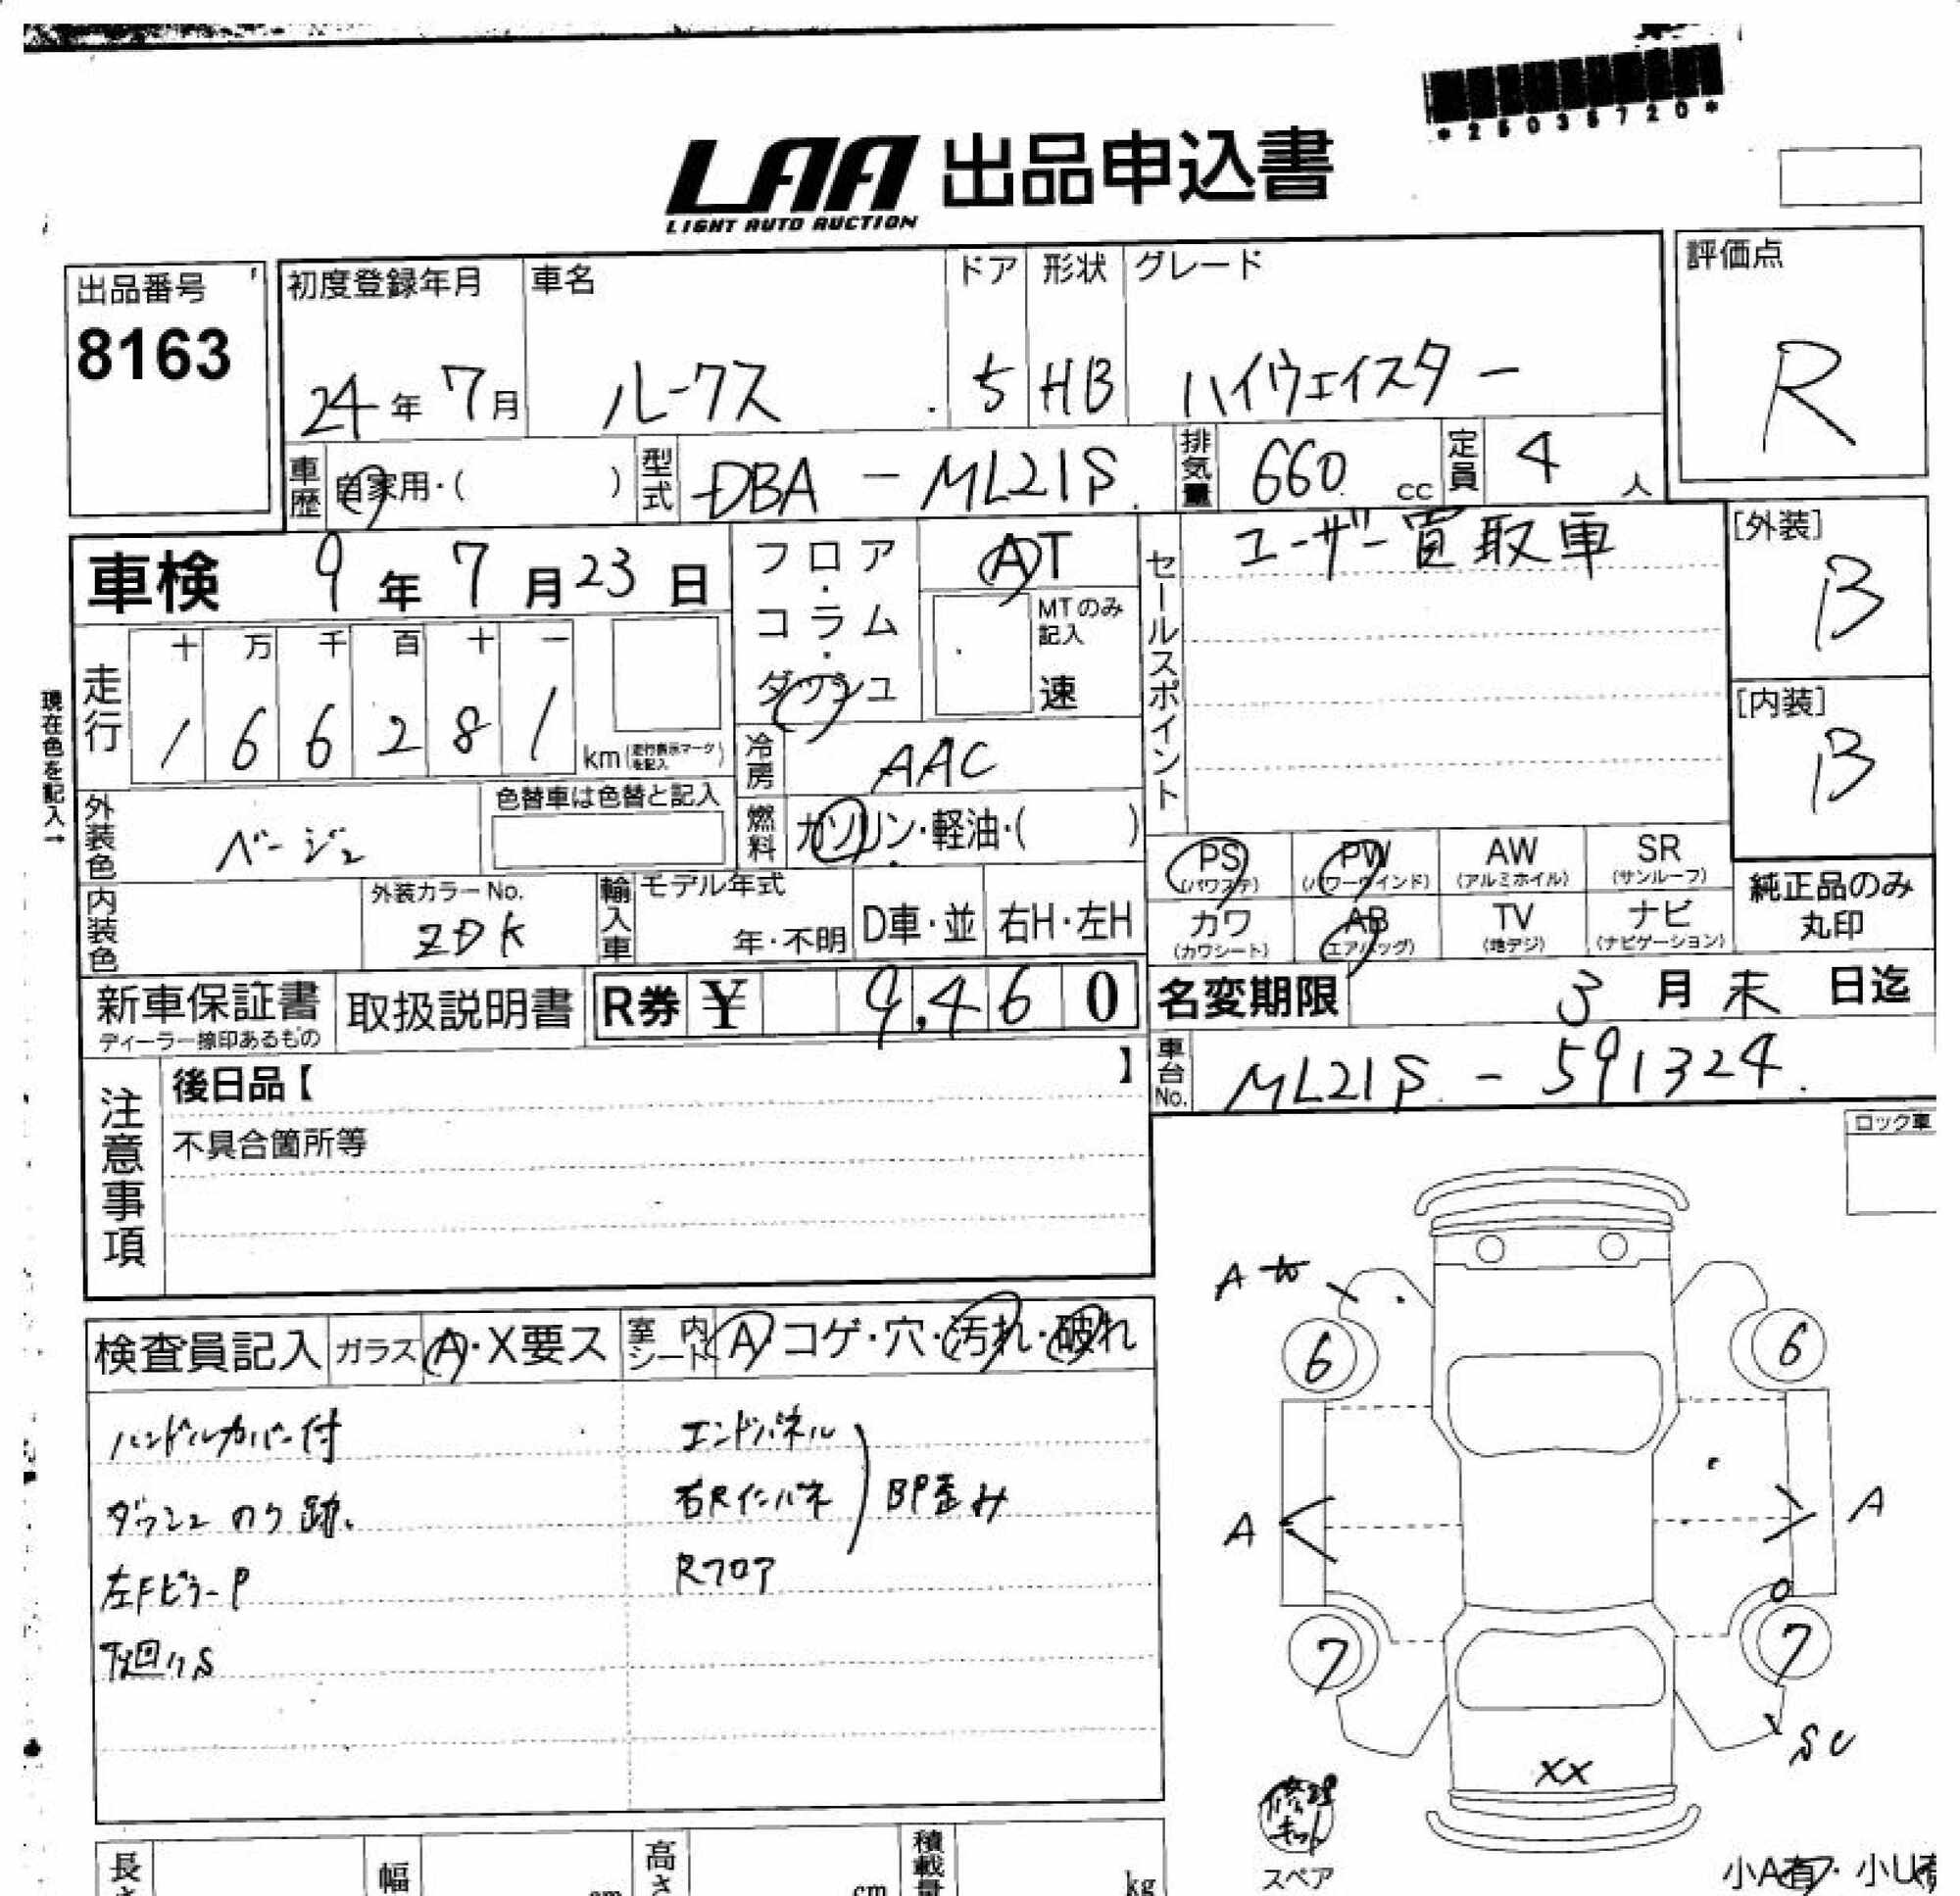 *26035720*
LAA 出品申込書
LIGHT AUTO AUCTION
出品番号
8163
初度登録年月
24年 7月
車名
ルークス
ドア
5
形状
HB
グレード
ハイウェイスター
評価点
R
車歴
自家用・( )
型式
DBA - ML21S
排気量
660 cc
定員
4 人
車検 9年 7月 23日
フロア・コラム・ダッシュ
AT
MTのみ記入
速
セールスポイント
ユーザー買取車
[外装]
B
[内装]
B
走行
十 万 千 百 十 一
1 6 6 2 8 1
km(走行表示マークを記入)
現在色を記入→
冷房
AAC
外装色
ベージュ
色替車は色替と記入
燃料
ガソリン・軽油・( )
PS (パワステ)
PW (パワーウインド)
AW (アルミホイル)
SR (サンルーフ)
カワ (カワシート)
AB (エアバッグ)
TV (地デジ)
ナビ (ナビゲーション)
純正品のみ
丸印
内装色
外装カラーNo.
ZDK
輸入車
モデル年式
年・不明
D車・並
右H・左H
新車保証書
ディーラー捺印あるもの
取扱説明書
R券 ¥ 9,460
名変期限 3月 末 日迄
車台No.
ML21S - 591324
注意事項
後日品【 】
不具合箇所等
ロック車
検査員記入
ガラス
A・X要ス
室内シート
A・コゲ・穴・汚れ・破れ
ハンドルカバー付
ダッシュ のり跡
左FピラーP
下回りS
エンドパネル
右Rインパネ
Rフロア
BP歪み
A
6
6
A
A
7
7
SU
XX
修理キット
スペア
小A有・小U有
長さ
幅
cm
高さ
cm
積載量
kg